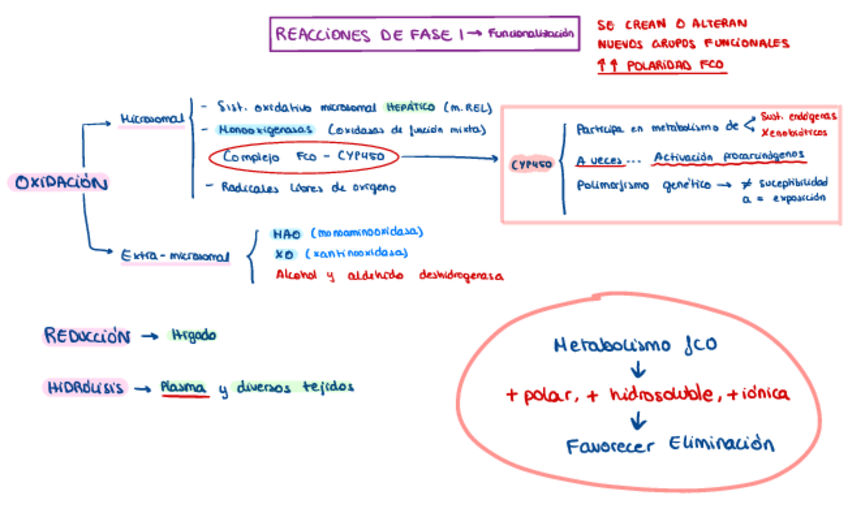 REACCIONES DE FASE I → Funcionalización
SE CREAN O ALTERAN
NUEVOS GRUPOS FUNCIONALES
↑↑ POLARIDAD FCO
OXIDACIÓN
Microsomal
- Sist. oxidativo microsomal HEPÁTICO (m. REL)
- Monooxigenasas (oxidasas de función mixta)
Complejo Fco - CYP450
- Radicales libres de oxígeno
CYP450
Participa en metabolismo de
Sust. endógenas
Xenobióticos
A veces... Activación procarcinógenos
Polimorfismo genético → ≠ suceptibilidad
a = exposición
Extra-microsomal
MAO (monoaminooxidasa)
XO (xantinooxidasa)
Alcohol y aldehído deshidrogenasa
REDUCCIÓN → Hígado
HIDRÓLISIS → Plasma y diversos tejidos
Metabolismo fCO
↓
+ polar, + hidrosoluble, + iónica
↓
Favorecer Eliminación